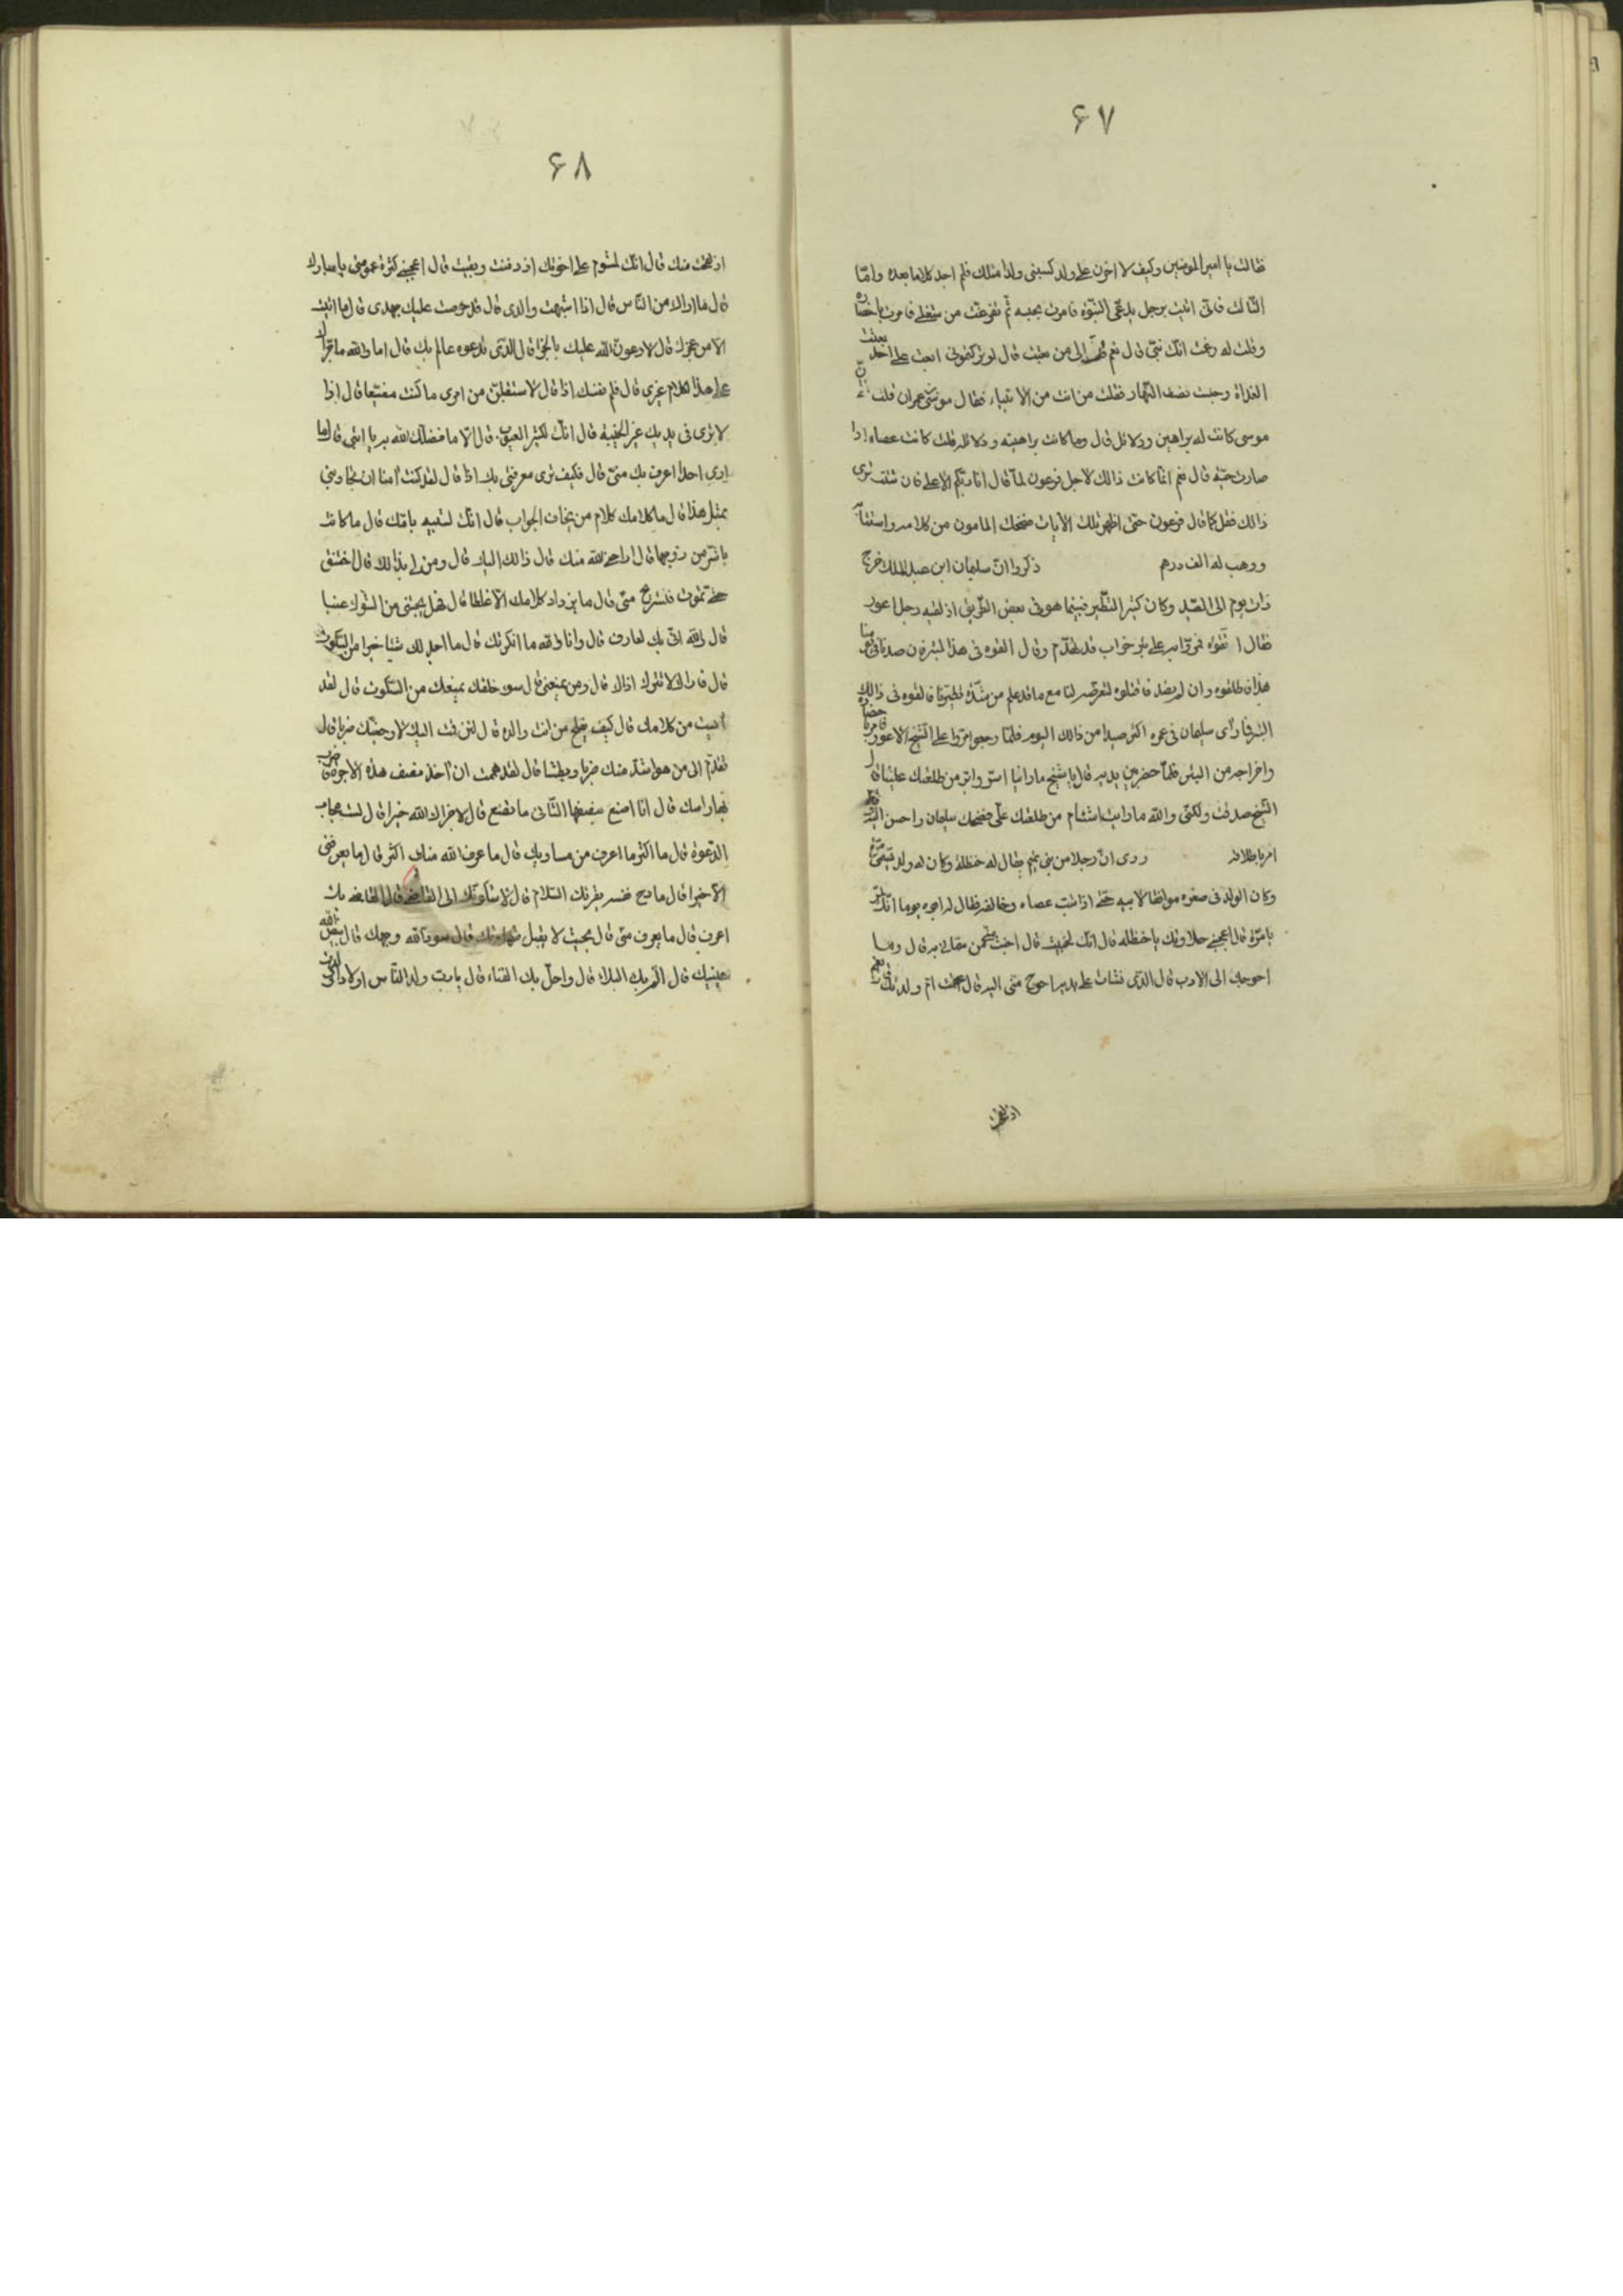 ۶۷
فقالت يا امير المؤمنين وكيف لا احزن على ولد كسبنى ولدا مثلك فلم اجد كلاما بعده وامّا
الثالث فانى اتيت برجل يدعى النبوة فامرت بحبسه ثم تفرغت من شغلى فامرت باحضاره
وقلت له زعمت انك نبى قال نعم قلت الى من بعثت قال او تركتمونى ابعث على احد بعثت
الغداة وحبست نصف النهار فقلت من انت من الانبياء فقال موسى بن عمران قلت انّ
موسى كانت له براهين ودلائل قال وما كانت براهينه ودلائله قلت كانت عصاه اذا
صارت حية قال نعم انما كانت ذالك لاجل فرعون لما قال انا ربكم الاعلى فان شئت ترى
ذالك فقل كما قال فرعون حتى اظهر تلك الآيات فضحك المامون من كلامه واستتابه
ووهب له الف درهم ذكروا ان سليمان ابن عبد الملك خرج
ذات يوم الى الصيد وكان كثير التطير فبينما هو فى بعض الطريق اذ لقيه رجل اعور
فقال ا نقوه فمروا به على بئر خراب قد تهدم وقال القوه فى هذا البئر فان صدنا فى يومنا
هذا فاطلقوه وان لم نصد فاقتلوه لتعرضه لنا مع ما قد علم من شدة تطيرنا فالقوه فى ذالك
البئر فما راى سليمان فى عمره اكثر صيدا من ذالك اليوم فلما رجعوا مروا على الشيخ الاعور فامر باحضاره
واخراجه من البئر فلما حضر بين يديه قال يا شيخ ما راينا اسر وابر من طلعتك علينا قال
الشيخ صدقت ولكنى والله ما رايت اشئم من طلعتك على فضحك سليمان واحسن اليه
امر باطلاقه روى ان رجلا من بنى تميم يقال له حنظلة وكان له ولد يسمى مرة
وكان الولد فى صغره مواظا لابيه حتى اذا شب عصاه وخالفه فقال له ابوه يوما انك لمر
يا مرة قال اعجبنى حلاوتك يا حنظله قال انك لخبيث قال اخبث منى من سمانى به قال وما
احوجك الى الادب قال الذى نشات على يديه احوج منى اليه قال عقمت ام ولدتك قال نعم
اذ ولدت
۶۸
اذ ولدت مثلك قال انك لمشوم على اخوتك اذ دفنت وبقيت قال اعجبنى كثرة عمومتى يا مبارك
قال ما اراك من الناس قال اذا اشبهت والدى قال قد حرصت عليك بجهدى قال ما اتيت
الا من عجزك قال لادعون الله عليك بالجزا قال الذى تدعوه عالم بك قال اما والله ما تجرا
على هذا الكلام غيرى قال فلم نفسك اذا قال لاستقبلن من امرى ما كنت مضيعا قال اذا
لا ترى فى يديك غير الخيبة قال انك لكثير العيوب قال الا ما فضلك الله به يا ابتى قال ما
ارى احدا اعرف بك منى قال فكيف ترى معرفتى بك اذا قال لقد كنت آمنا ان تجاوبنى
بمثل هذا قال ما كلامك كلام من يخاف الجواب قال انك لشبيه بامك قال ما كانت
باشر من زوجها قال اراحنى الله منك قال ذالك اليك قال ومن لى بذالك قال اختنق
حتى تموت فتستريح منى قال ما يزداد كلامك الا غلظا قال فهل يجتنى من الشوك عنبا
قال والله انى بك لعارف قال وانا والله ما انكرتك قال ما اجد لك شيئا خيرا من السكوت
قال فاراك لا تتركه اذا قال ومن يمنعنى قال سوء خلقك يمنعك من السكوت قال لقد
آيست من كلامك قال كيف يفلح من انت والده قال لئن قمت اليك لاوجعنك ضربا قال
تقدم الى من هو اشد منك ضربا وبطشا قال لقد هممت ان آخذ منصف هذه الآجرة فاضرب
بها راسك قال انا اصنع بنصفها الثانى ما تصنع قال لا جزاك الله خيرا قال لست مجاب
الدعوة قال ما اكثر ما اعرف من مساويك قال ما عرف الله منك اكثر قال ما يعرفنى
الا خيرا قال مادح نفسه يقرئك السلام قال لاشكونك الى القاضى قال القاضى بك
اعرف قال ما يعرف منى قال بحيث لا يقبل شهادتك قال سود الله وجهك قال بيض الله
عينيك قال الزمك البلاء قال واحل بك الفناء قال يا رب ولد الناس اولادا